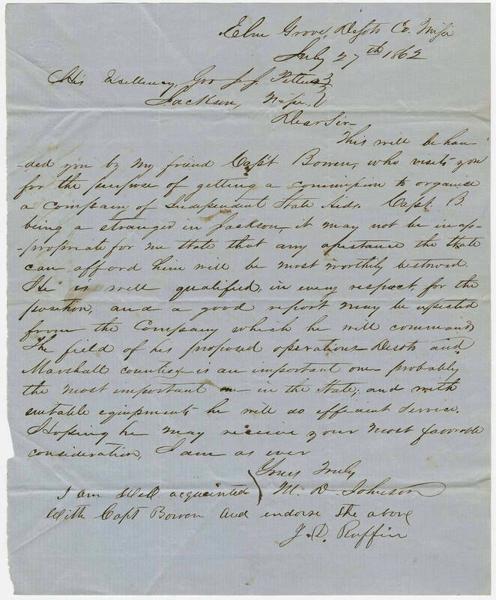 Elm Grove, DeSoto Co. Missi
July 27th 1862
His Excellency, Gov J. J. Pettus
Jackson, Missi
Dear Sir
This will be han-
ded you by my friend Capt Bowen, who visits you
for the purpose of getting a commission to organise
a company of Independent State Aids. Capt. B.
being a stranger in Jackson, it may not be inap-
-propriate for me state that any assistance the State
can afford him will be most worthily bestowed.
He is well qualified in every respect for the
position, and a good report may be expected
from the Company which he will command
The field of his proposed operations Desoto and
Marshall counties is an important one probably
the most important in the State; and with
suitable equipment he will do efficient service.
Hoping he may receive your most favorable
consideration, I am as ever
Yours Truly
M. D. Johnson
I am well acquainted
with Capt Bowen and endorse the above
J. D. Ruffin